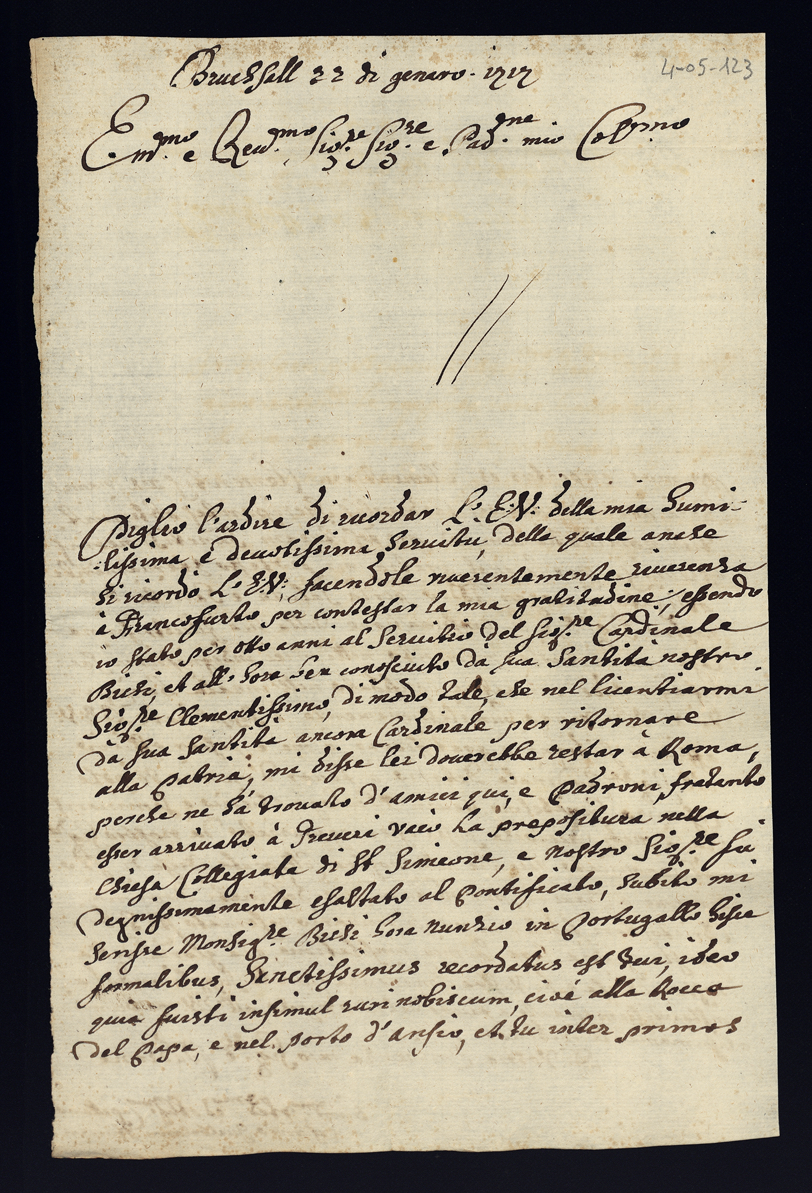 Bruchsall 22 di genaro. 1717
4-05-123
E.mo e Reu.mo Sig.re Sig.re e Pad.ne mio Col.mo
Piglio l'ardire di ricordar L'E:V: della mia humi-
lissima e deuotissima seruitù, della quale anche
si ricordò L'E:V: facendole riuerentemente riuerenza
à Francofurto per contestar la mia gratitudine, essendo
io stato per otto anni al seruitio del Sig.re Cardinale
Bichi, et all'hora ben conosciuto dà sua Santità nostro
Sig.re Clementissimo, di modo tale, che nel licentiarmi
dà sua Santità ancora Cardinale per ritornare
alla patria, mi disse lei douerebbe restar à Roma,
perche ne hà trouato d'amici qui, e padroni, fratanto
esser arriuato à Treueri vacò la prepositura nella
Chiesa Collegiata di St Simeone, e nostro Sig.re fù
degnissimamente esaltato al pontificato, subito mi
scrisse Monsig.re Bichi hora nunzio in Portugallo hisce
formalibus, Sanctissimus recordatus est tui, ideo
quia fuisti insimul ruri nobiscum, cioè alla Rocca
del Papa, e nel porto d'ansio, et tu inter primos